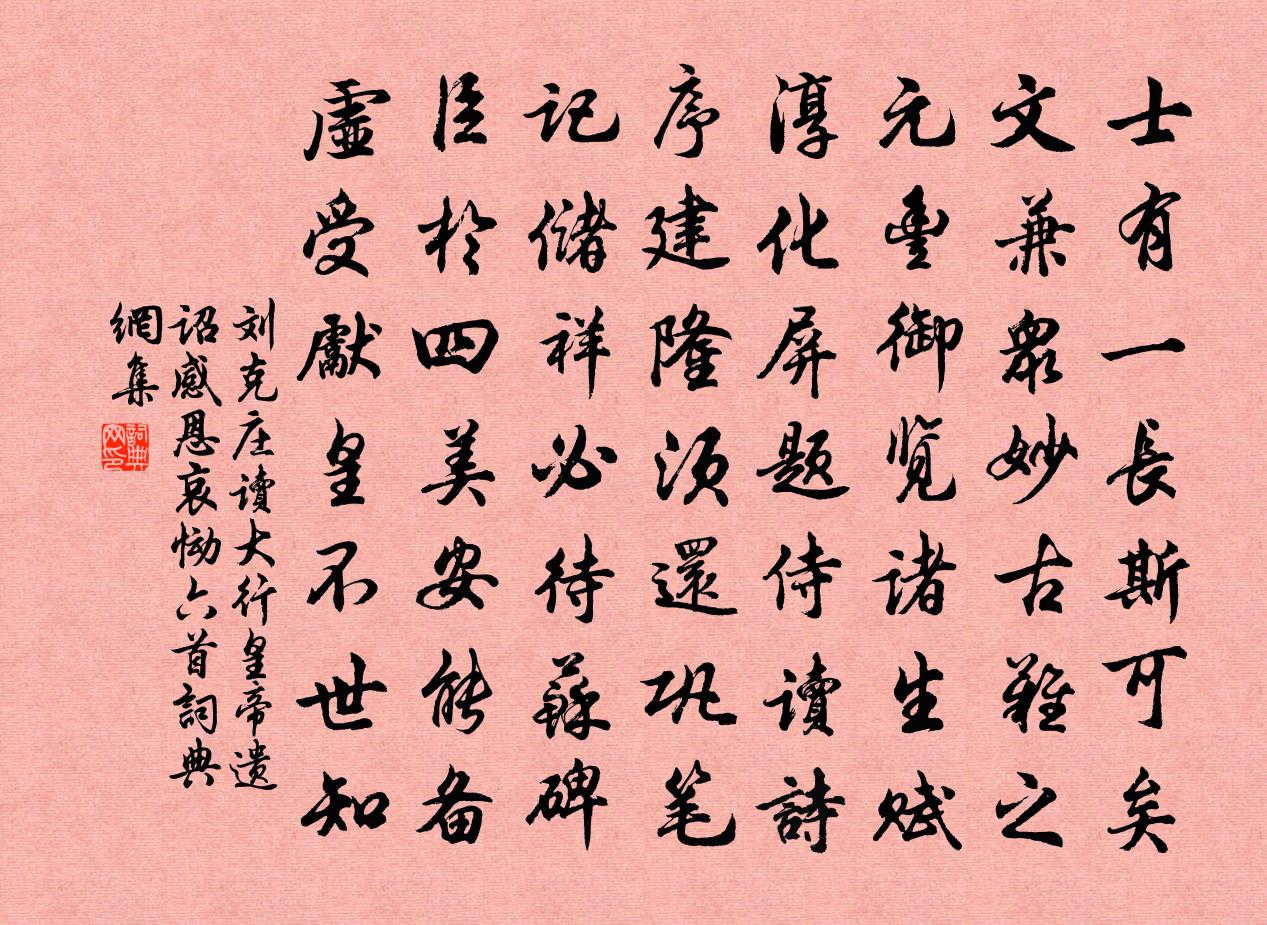 士有一長斯可矣
文兼眾妙古難之
元豐御览諸生赋
淳化屏題侍讀詩
序建隆須還巩笔
記儲祥必待蘇碑
臣於四美安能备
虛受獻皇不世知
刘克庄讀大行皇帝遗
詔感恩哀慟六首詞典
網集